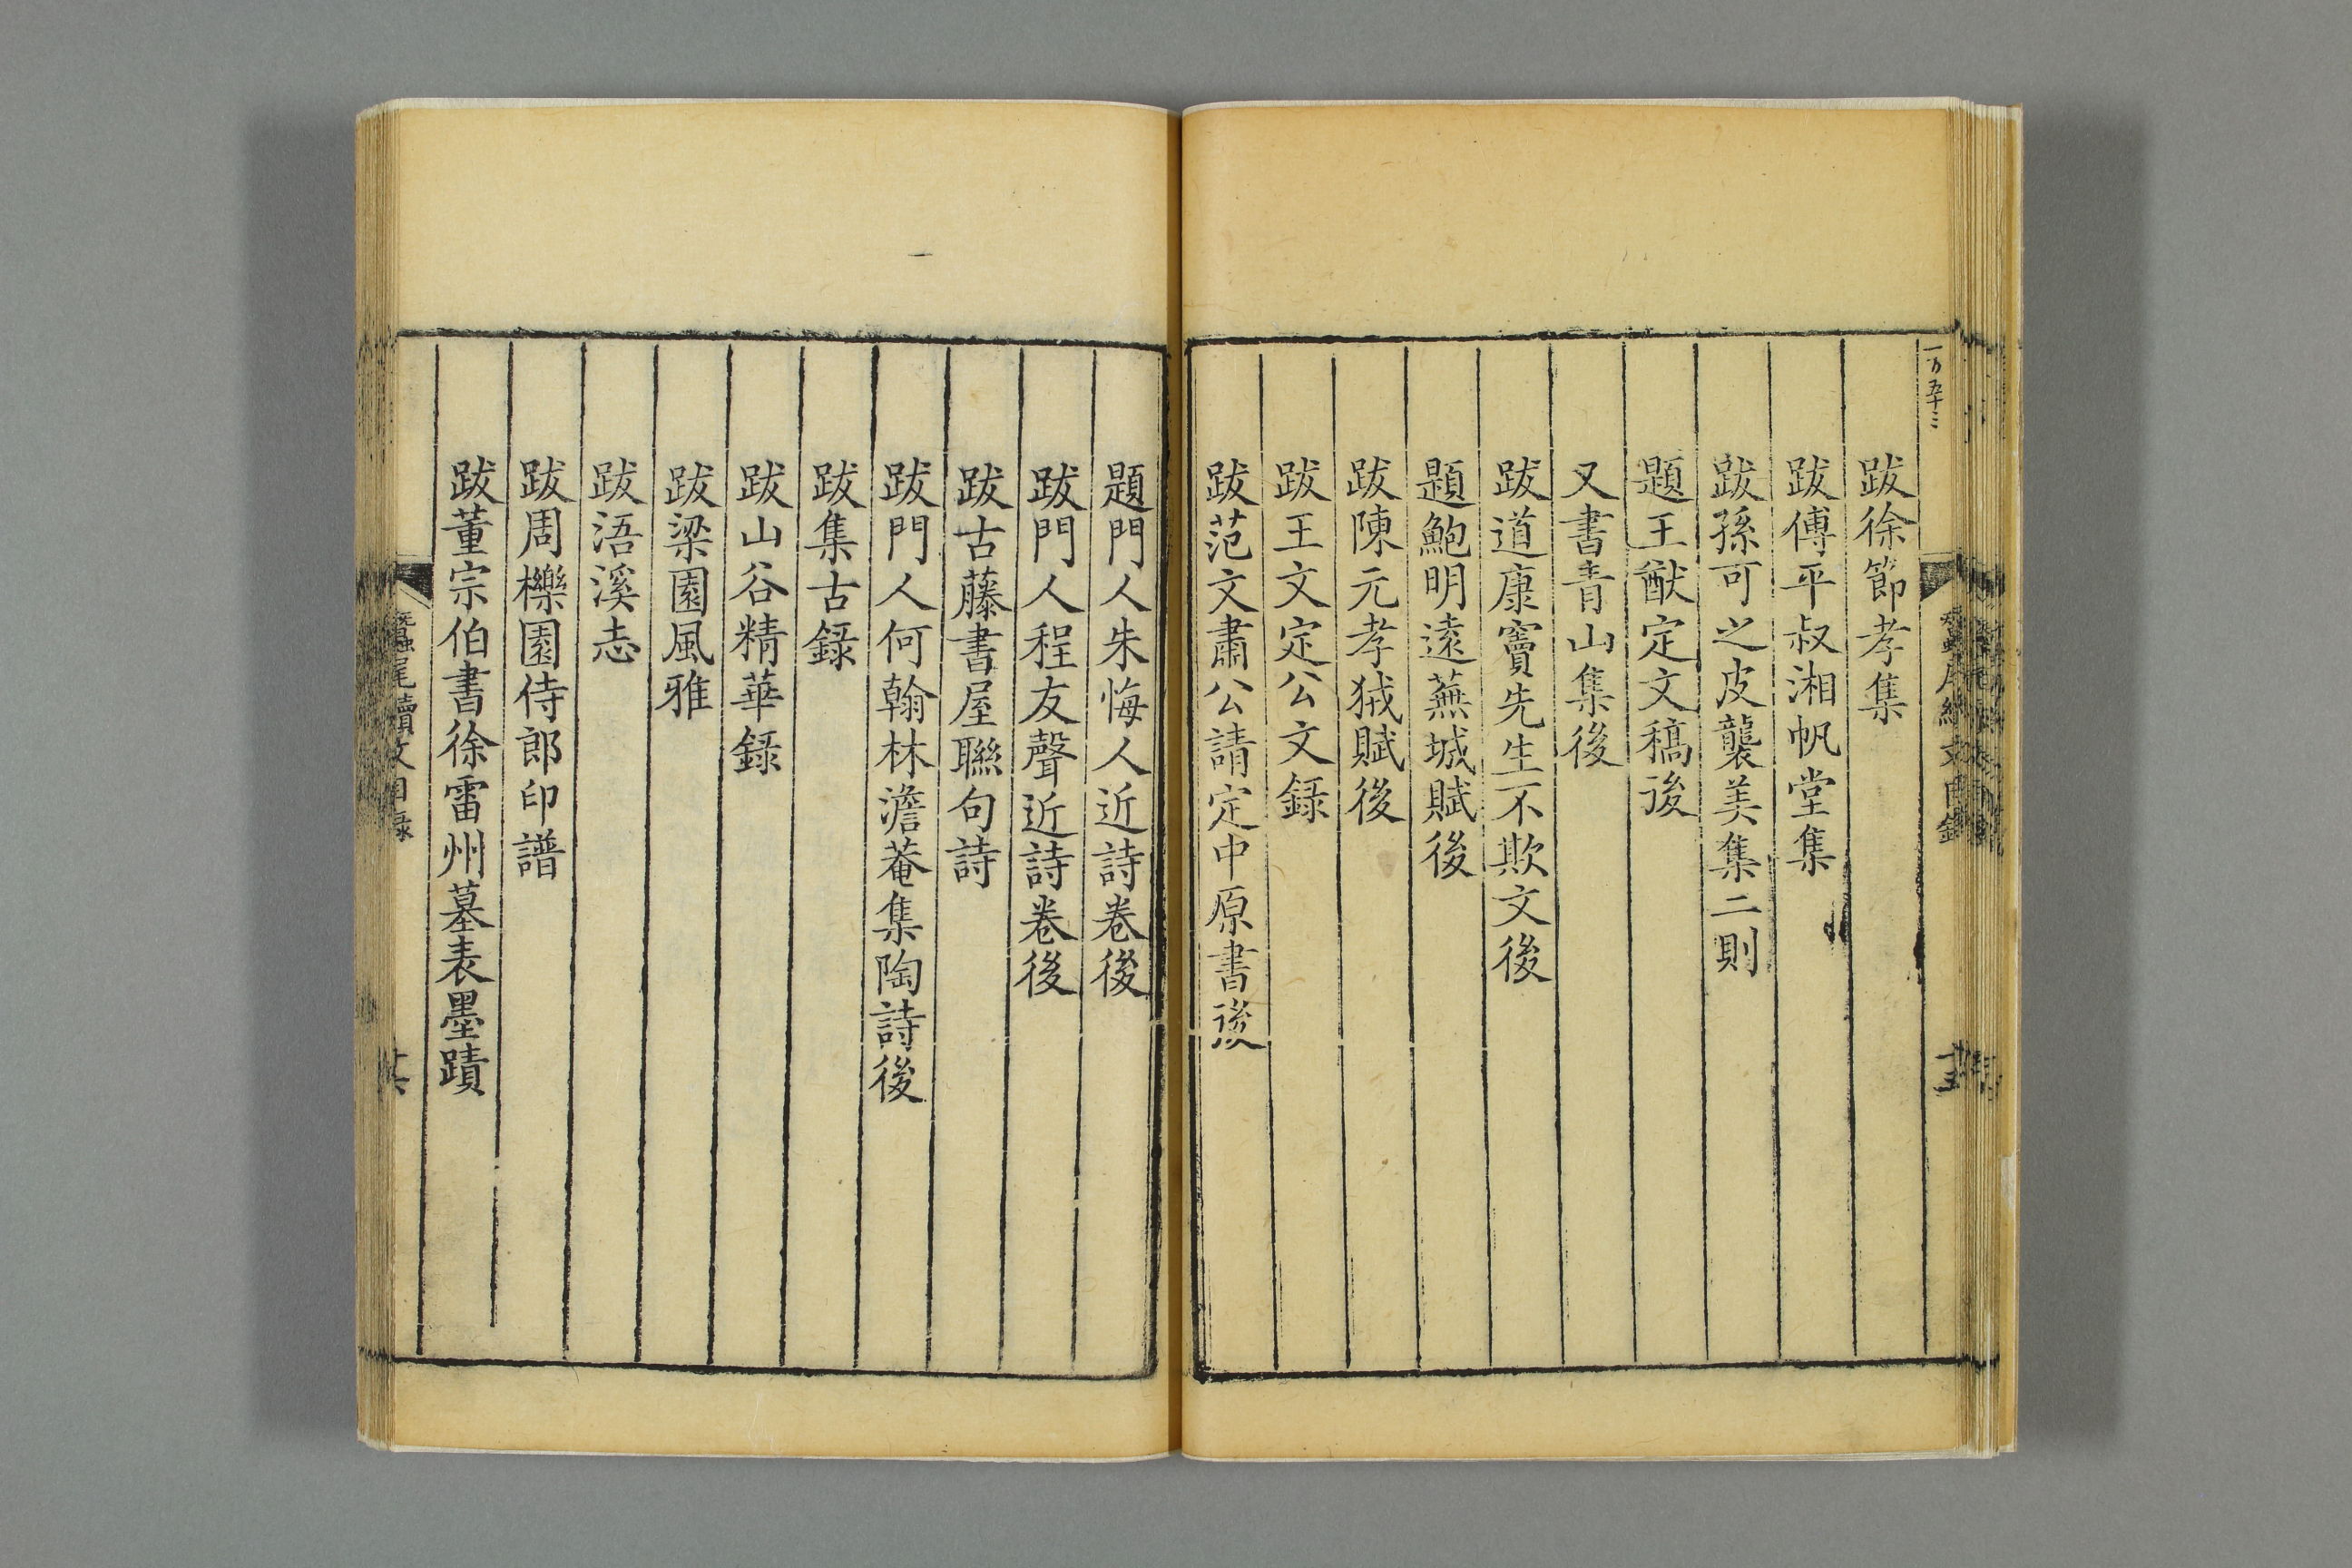 一百五十三
跋徐節孝集
跋傅平叔湘帆堂集
跋孫可之皮襲美集二則
題王猷定文稿後
又書青山集後
跋道康竇先生不欺文後
題鮑明遠蕪城賦後
跋陳元孝狨賦後
跋王文定公文録
跋范文肅公請定中原書後
題門人朱悔人近詩卷後
跋門人程友聲近詩卷後
跋古藤書屋聯句詩
跋門人何翰林澹菴集陶詩後
跋集古録
跋山谷精華録
跋梁園風雅
跋浯溪志
跋周櫟園侍郎印譜
跋董宗伯書徐雷州墓表墨蹟
蠶尾續文目録